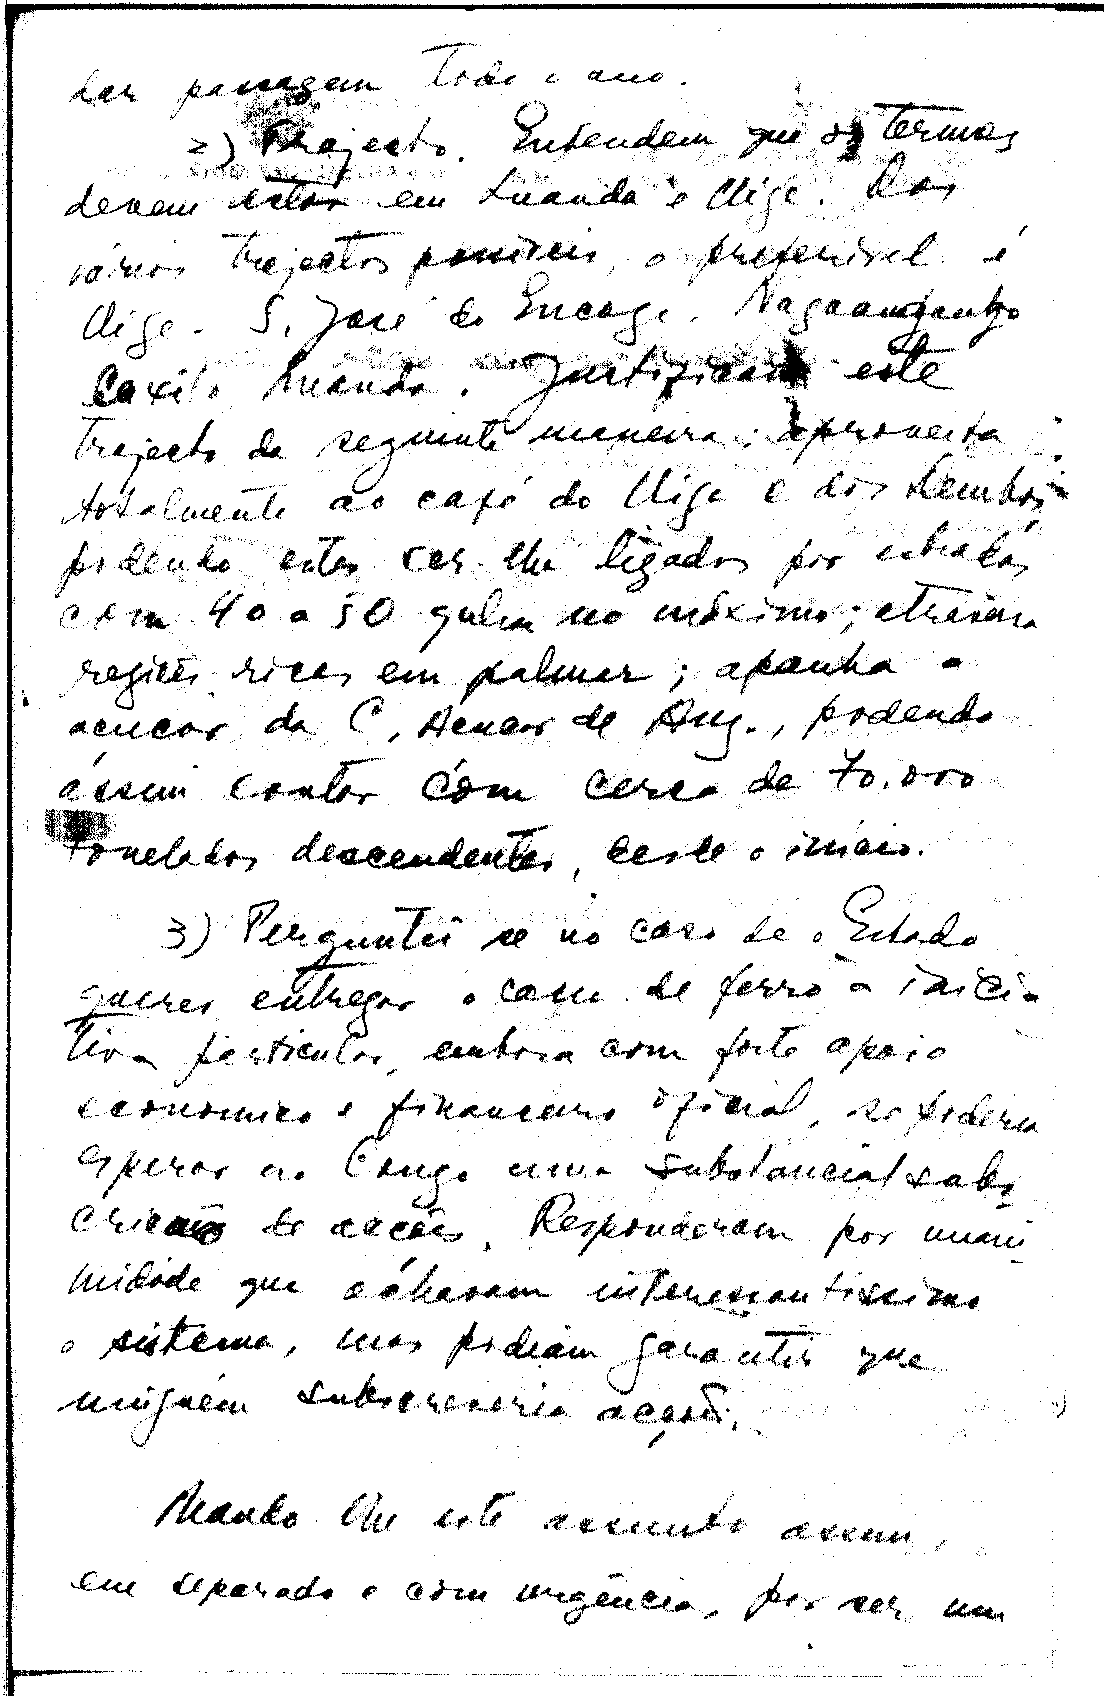 dar passagem todo o ano.
2) Trajecto. Entendem que os termos
devem estar em Luanda e Uige. Dos
vários trajectos possíveis, o preferível é
Uige - S. José do Encoge -
Caxito Luanda. Justificam este
trajecto da seguinte maneira: aproveita
totalmente ao café do Uige e dos Dembos
podendo estes ser lhe ligados por estradas
com 40 a 50 no máximo; atravessa
regiões ricas em palmar; apanha o
açucar da C. Açucar de Ang., podendo
assim contar com cerca de 70.000
toneladas descendentes, desde o início.
3) Perguntei se no caso de o Estado
querer entregar o cam. de ferro à inicia
tiva particular, embora com forte apoio
economico e financeiro oficial, se poderia
esperar no Congo uma substancial subs
crição de acções. Responderam por unani
midade que achavam interessantissimo
o sistema, mas podiam garantir que
ninguém subscreveria acções.
Mando lhe este assunto assim,
em separado e com urgência, por ser um